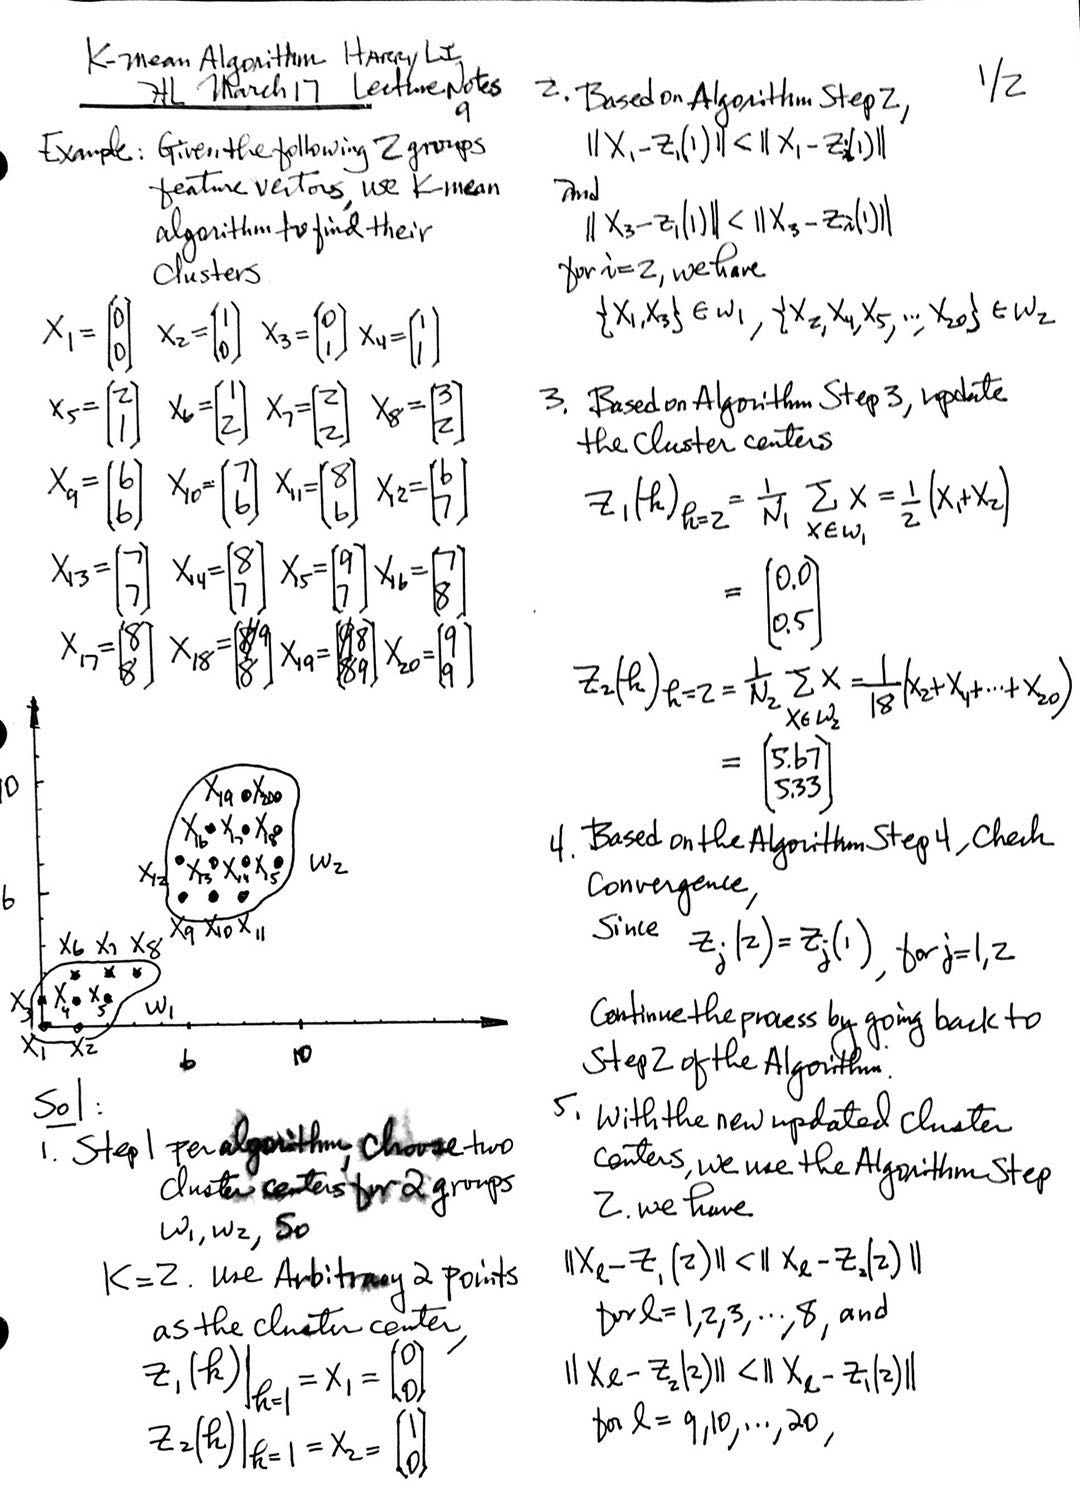 K-mean Algorithm Harry Li
HL March 17 Lecture Notes
9
Example: Given the following 2 groups
feature vectors, use K-mean
algorithm to find their
clusters
X₁ = [0 0] X₂ = [1 0] X₃ = [0 1] X₄ = [1 1]
X₅ = [2 1] X₆ = [1 2] X₇ = [2 2] X₈ = [3 2]
X₉ = [6 6] X₁₀ = [7 6] X₁₁ = [8 6] X₁₂ = [6 7]
X₁₃ = [7 7] X₁₄ = [8 7] X₁₅ = [9 7] X₁₆ = [7 8]
X₁₇ = [8 8] X₁₈ = [9 8] X₁₉ = [8 9] X₂₀ = [9 9]
10
X₁₉ X₂₀
X₁₆ X₁₇ X₁₈
X₁₂ X₁₃ X₁₄ X₁₅ W₂
6
X₉ X₁₀ X₁₁
X₆ X₇ X₈
X₃ X₄ X₅ W₁
X₁ X₂ 6 10
Sol:
1. Step 1 per algorithm, choose two
cluster centers for 2 groups
W₁, W₂, So
K=2. Use Arbitrary 2 points
as the cluster center,
Z₁(k)|k=1 = X₁ = [0 0]
Z₂(k)|k=1 = X₂ = [1 0]
1/2
2. Based on Algorithm Step 2,
||X₁-Z₁(1)|| < ||X₁-Zᵢ(1)||
And
||X₃-Z₁(1)|| < ||X₃-Zᵢ(1)||
for i=2, we have
{X₁,X₃} ∈ W₁, {X₂,X₄,X₅, ..., X₂₀} ∈ W₂
3. Based on Algorithm Step 3, update
the Cluster centers
Z₁(k)k=2 = 1/N₁ Σ X∈W₁ X = 1/2 (X₁+X₂)
= [0.0 0.5]
Z₂(k)k=2 = 1/N₂ Σ X∈W₂ X = 1/18 (X₂+X₄+...+X₂₀)
= [5.67 5.33]
4. Based on the Algorithm Step 4, Check
Convergence,
Since Zⱼ(2) = Zⱼ(1), for j=1,2
Continue the process by going back to
Step 2 of the Algorithm.
5. With the new updated Cluster
Centers, we use the Algorithm Step
2. we have
||Xℓ-Z₁(2)|| < ||Xℓ-Z₂(2)||
for ℓ=1,2,3, ..., 8, and
||Xℓ-Z₂(2)|| < ||Xℓ-Z₁(2)||
for ℓ=9,10, ..., 20,